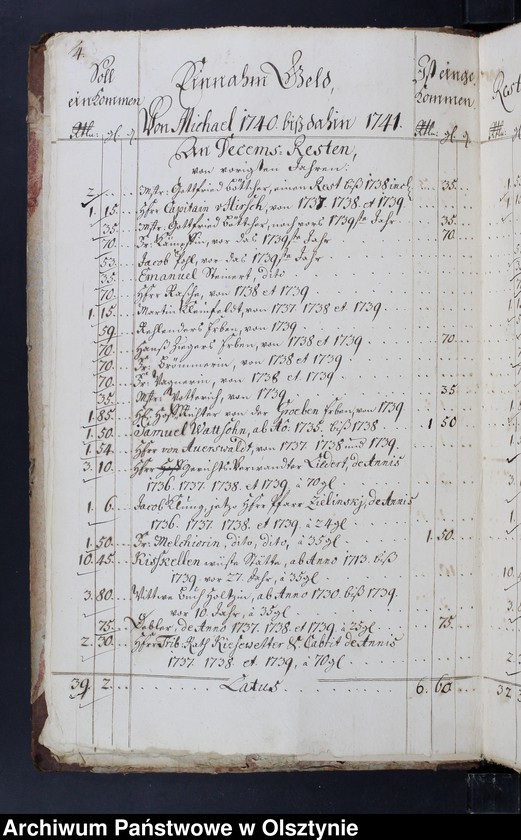 4.
Soll einkommen
Einnahm Geld,
Ist einge kommen
Rest
Rthlr. gl. ₰.
Von Michael 1740. biß dahin 1741.
Rthlr. gl. ₰.
An Decems-Resten,
von vorigten Jahren.
2. Mstr. Gottfried Böttcher, einen Rest biß 1738 incl. 35.
1. 15. Herr Capitain v Hirsch, von 1737. 1738 et 1739.
35. Mstr. Gottfried Böttcher, noch vors 1739ste Jahr 35.
70. Fr. Kämpffin, vor das 1739ste Jahr 70.
53. Jacob Pohl, vor das 1739ste Jahr
35. Emanuel Steinert, dito
70. Herr Rasche, von 1738 et 1739.
1. 15. Martin Kleinfeldt, von 1737. 1738 et 1739.
59. Erben, von 1739
70. Hanß Zögers Erben, von 1738 et 1739. 70.
70. Fr. Brömmerin, von 1738 et 1739.
70. Fr. Wagnerin, von 1738 et 1739.
35. Mstr. von 1739. 35
1. 85. von der Gröeben Erben, von 1739
1. 50. Samuel Wattsohn, ab Ao: 1735. biß 1738 1. 50
1. 54. Herr von Auerswaldt, von 1737. 1738 und 1739.
3. 10. Herr Gerichts Verwandter de Annis
1736. 1737. 1738. et 1739. à 70 gl
1. 6. Jacob Klung, jetzo Herr Pfarr Zielinskj, de Annis
1736. 1737. 1738. et 1739. à 24 gl
1. 50. Fr. Melchiorin, dito, dito, à 35 gl 1. 50.
10. 45. Kißkellen wüste Stätte, ab Anno 1713. biß
1739. vor 27. Jahr, à 35 gl
3. 80. Wittwe Buchholtzin, ab Anno 1730. biß 1739.
vor 10. Jahr, à 35 gl
75. Döbler, de Anno 1737. 1738. et 1739. à 25 gl. 75.
2. 30. Herr Trib: Rath Kiesewetter & Cabrit de Annis
1737. 1738. et. 1739. à 70 gl
39. 2. Latus. 6. 60. 32.
Archiwum Państwowe w Olsztynie